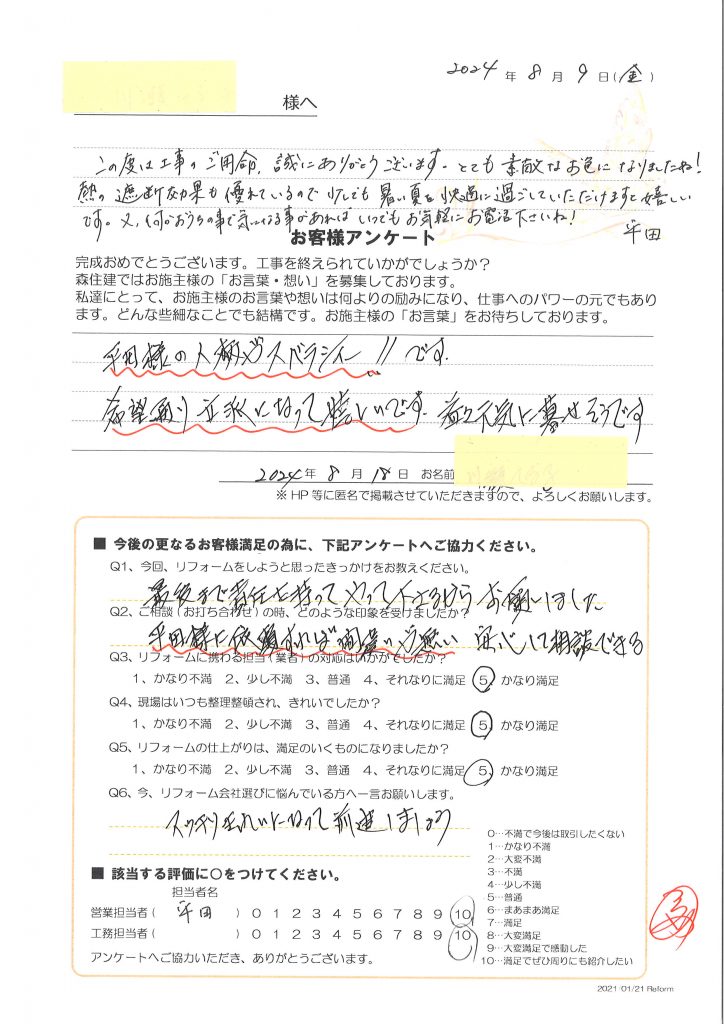 2024 年 8 月 9 日(金)
様へ
この度は工事のご用命、誠にありがとうございます。とても素敵なお色になりましたね!
熱の遮断効果も優れているので少しでも暑い夏を快適に過ごしていただけますと嬉しい
です。又、何かおうちの事で気になる事があればいつでもお気軽にお電話下さいね!
平田
お客様アンケート
完成おめでとうございます。工事を終えられていかがでしょうか?
森住建ではお施主様の「お言葉・想い」を募集しております。
私達にとって、お施主様のお言葉や想いは何よりの励みになり、仕事へのパワーの元でもあり
ます。どんな些細なことでも結構です。お施主様の「お言葉」をお待ちしております。
平田様の人柄がスバラシイー!!です。
希望通り立派になって嬉しいです。益々元気に暮せそうです
2024年 8 月 18 日 お名前
※HP等に匿名で掲載させていただきますので、よろしくお願いします。
■ 今後の更なるお客様満足の為に、下記アンケートへご協力ください。
Q1、今回、リフォームをしようと思ったきっかけをお教えください。
最後まで責任を持ってやって下さるからお願いしました
Q2、ご相談(お打ち合わせ)の時、どのような印象を受けましたか?
平田様に依頼すれば間違い無い 安心して相談できる
Q3、リフォームに携わる担当(業者)の対応はいかがでしたか?
1、かなり不満 2、少し不満 3、普通 4、それなりに満足 5、かなり満足
Q4、現場はいつも整理整頓され、きれいでしたか?
1、かなり不満 2、少し不満 3、普通 4、それなりに満足 5、かなり満足
Q5、リフォームの仕上がりは、満足のいくものになりましたか?
1、かなり不満 2、少し不満 3、普通 4、それなりに満足 5、かなり満足
Q6、今、リフォーム会社選びに悩んでいる方へ一言お願いします。
スッキリきれいになって前進しましょう
■ 該当する評価に○をつけてください。
担当者名
営業担当者( 平田 ) 0 1 2 3 4 5 6 7 8 9 10
工務担当者( ) 0 1 2 3 4 5 6 7 8 9 10
アンケートへご協力いただき、ありがとうございます。
0…不満で今後は取引したくない
1…かなり不満
2…大変不満
3…不満
4…少し不満
5…普通
6…まあまあ満足
7…満足
8…大変満足
9…大変満足で感動した
10…満足でぜひ周りにも紹介したい
2021/01/21 Reform